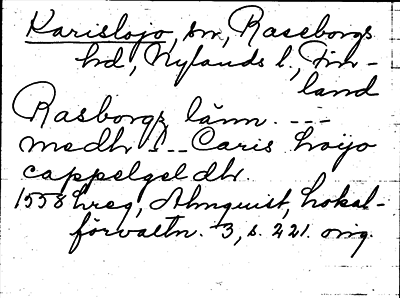 Karislojo, sn, Raseborgs
hd, Nylands l., Fin-
land
Rasborgs länn. ---
medh s -- Caris loijo
cappelgeldh.
1558 hreg, Almquist, Lokal-
förvaltn. 3, s. 221. orig.